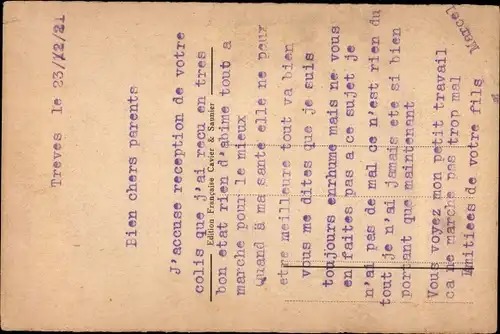 Treves le 23/12/21
Bien chers parents
J'accuse reception de votre
colis que j'ai recu en tres
bon etat rien d'abime tout a
marche pour le mieux
Quand à ma sante elle ne peur
etre meilleure tout va bien
vous me dites que je suis
toujours enrhume mais ne vous
en faites pas a ce sujet je
n'ai pas de mal ce n'est rien du
tout je n'ai jamais ete si bien
portant que maintenant
Vous voyez mon petit travail
ca ne marche pas trop mal
Amitiees de votre fils
Marcel
Edition Française Cavier & Saunier